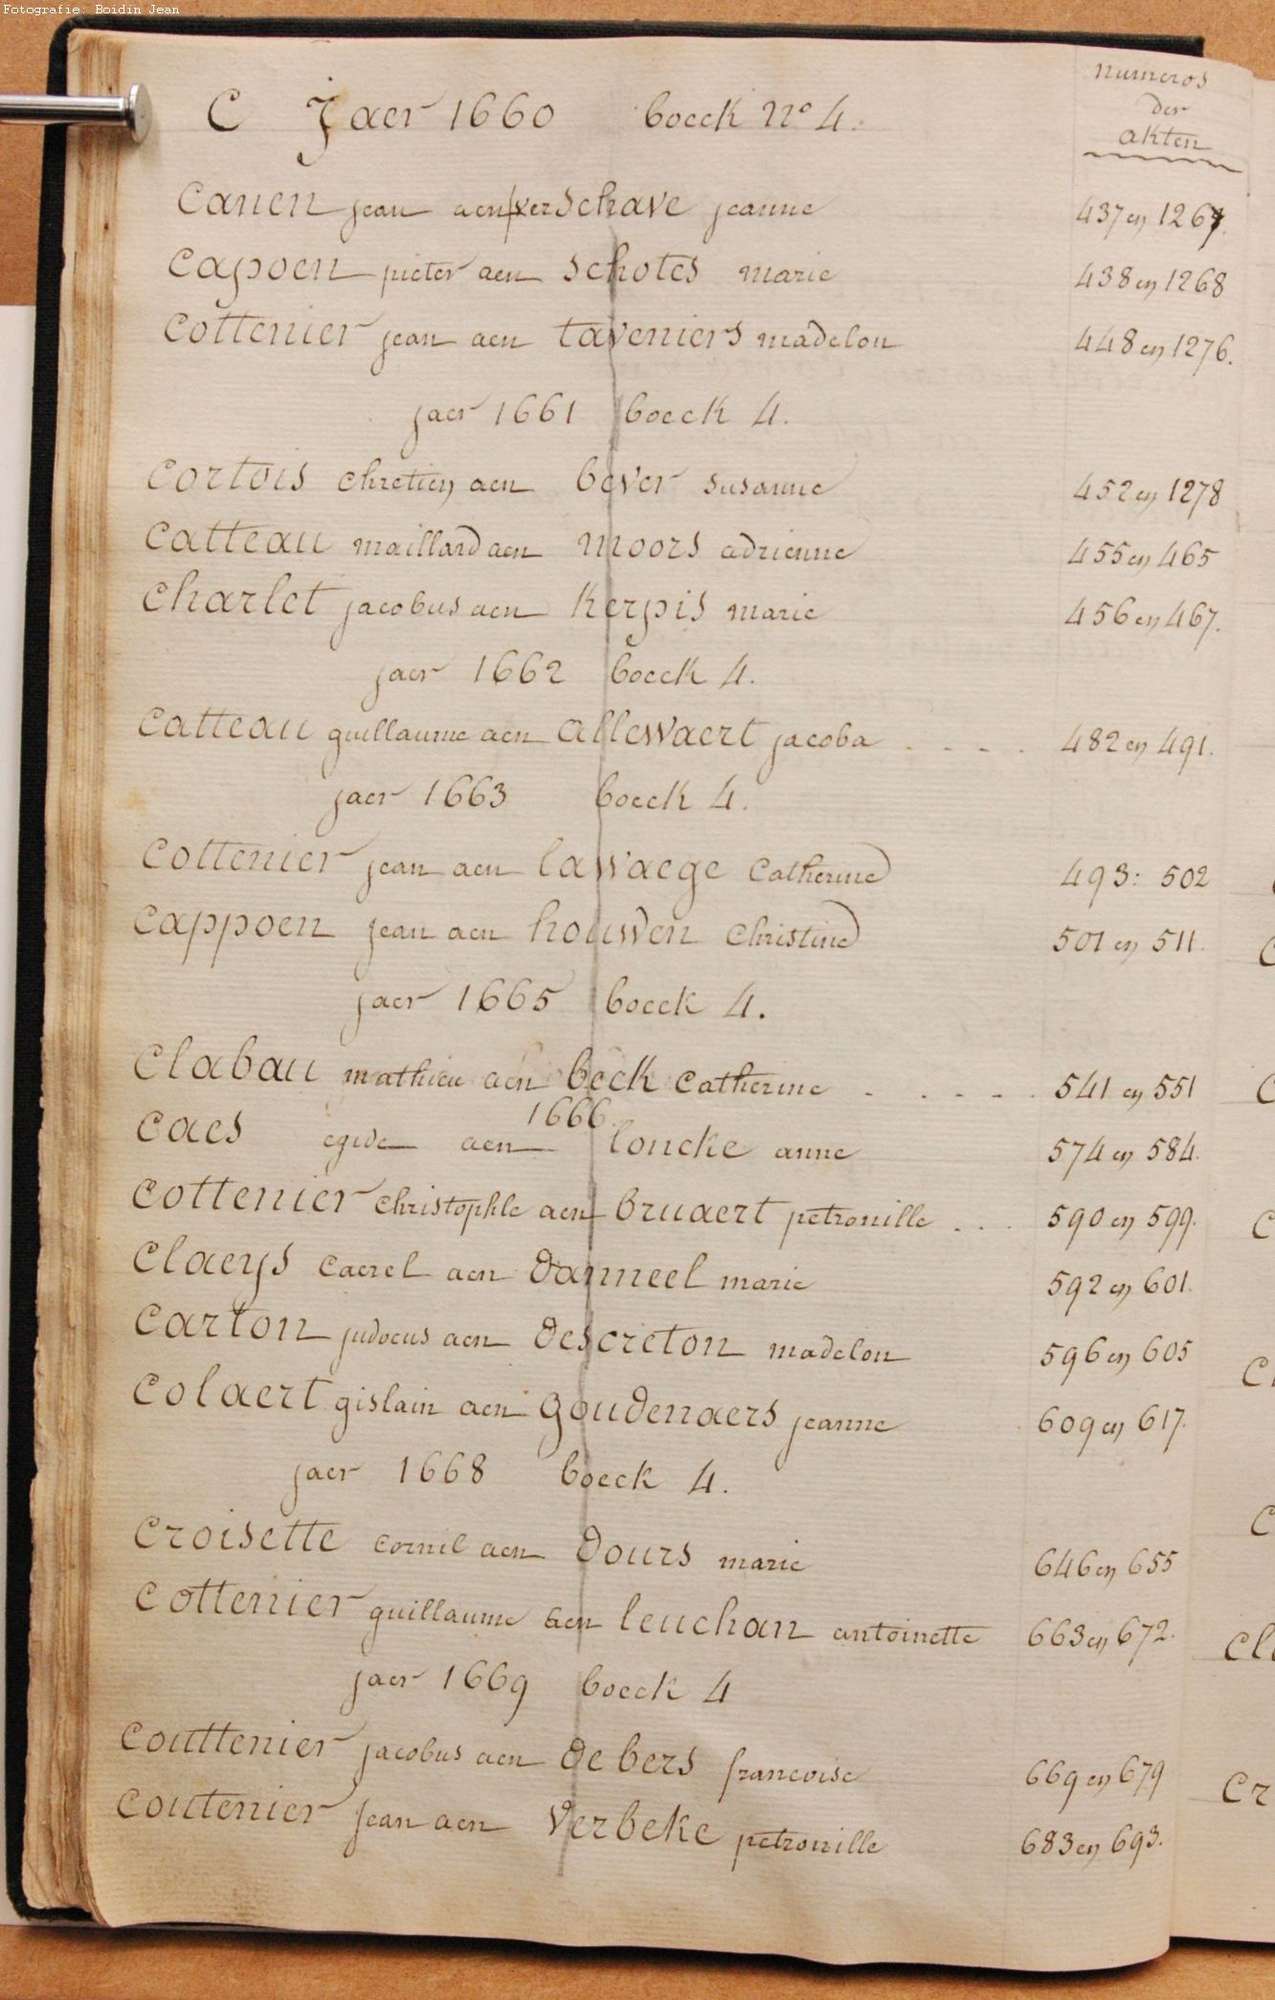 Fotografie: Boidin Jean
numeros
der
akten
C Jaer 1660 boeck n° 4.
Canen jean aen verschave jeanne 437 en 1267.
Capoen pieter aen Schotes marie 438 en 1268
Cottenier jean aen taveniers madelon 448 en 1276.
jaer 1661 boeck 4.
Cortois chretien aen bever susanne 452 en 1278
Catteau maillard aen moors adrienne 455 en 465
Charlet jacobus aen Kerpis marie 456 en 467.
jaer 1662 boeck 4.
Catteau guillaume aen allewaert jacoba . - - . 482 en 491.
jaer 1663 boeck 4.
Cottenier jean aen lawaege Catherine 493: 502
Cappoen jean aen houwen Christine 501 en 511.
jaer 1665 boeck 4.
Clabau mathieu aen beck Catherine - . - - . 541 en 551
1666.
Caes egide aen loncke anne 574 en 584.
Cottenier christophle aen bruaert petronille . . . 590 en 599.
Claeys Caerel aen danneel marie 592 en 601.
Carton judocus aen descreton madelon 596 en 605
Colaert gislain aen goudenaers jeanne 609 en 617.
jaer 1668 boeck 4.
Croisette cornil aen dours marie 646 en 655
Cottenier guillaume aen leuchan antoinette 663 en 672.
jaer 1669 boeck 4
Couttenier jacobus aen de bers francoise 669 en 679
Coutenier jean aen Verbeke petronille 683 en 693.